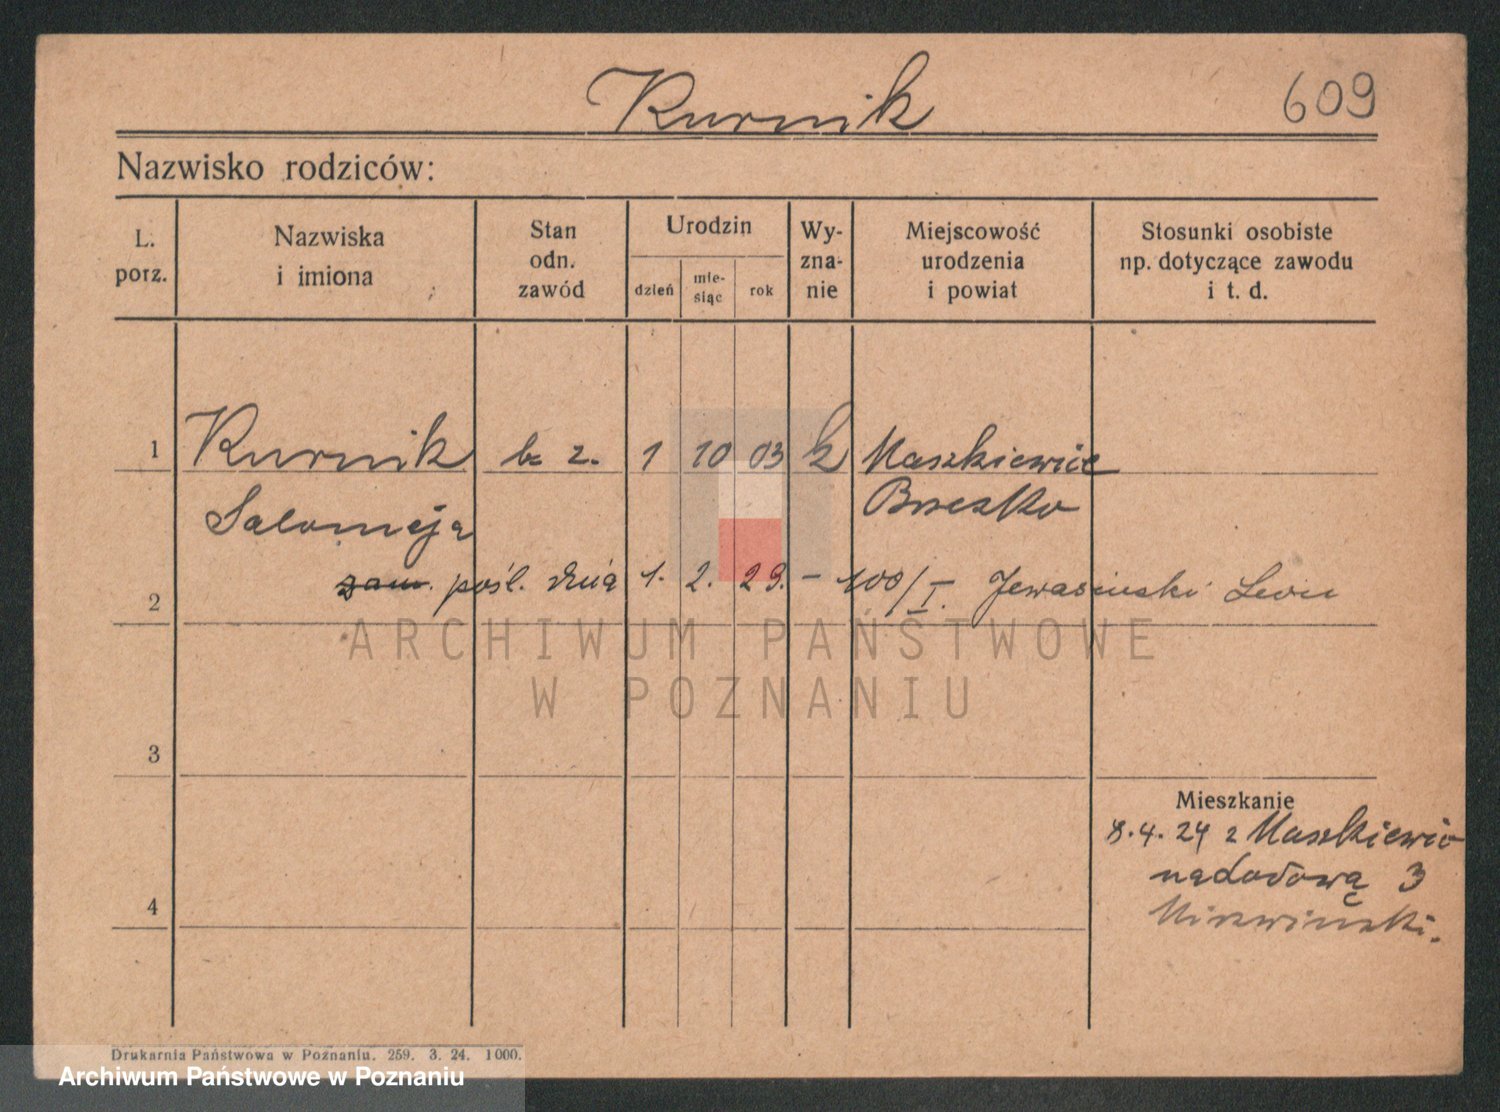 Kurnik
609
Nazwisko rodziców:
L. porz.
Nazwiska i imiona
Stan odn. zawód
Urodzin
dzień
mie-siąc
rok
Wy-zna-nie
Miejscowość urodzenia i powiat
Stosunki osobiste np. dotyczące zawodu i t. d.
1 Kurnik b. z. 1 10 03 k Maszkiewice
Salomeja Brzesko
2 zam. pośl. dnia 1. 2. 29. – 100/I. Leon
ARCHIWUM PAŃSTWOWE
W POZNANIU
3
Mieszkanie
8.4.24 z Maszkiewic
3
4
Drukarnia Państwowa w Poznaniu. 259. 3. 24. 1000.
Archiwum Państwowe w Poznaniu